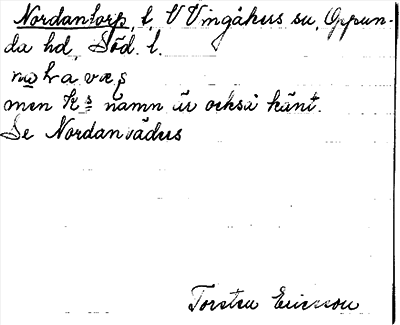 Nordantorp, t, V Vingåkers sn, Oppun-
da hd, Söd. l.
men K:s namn är också känt.
Se Nordanrådus
Torsten Ericsson